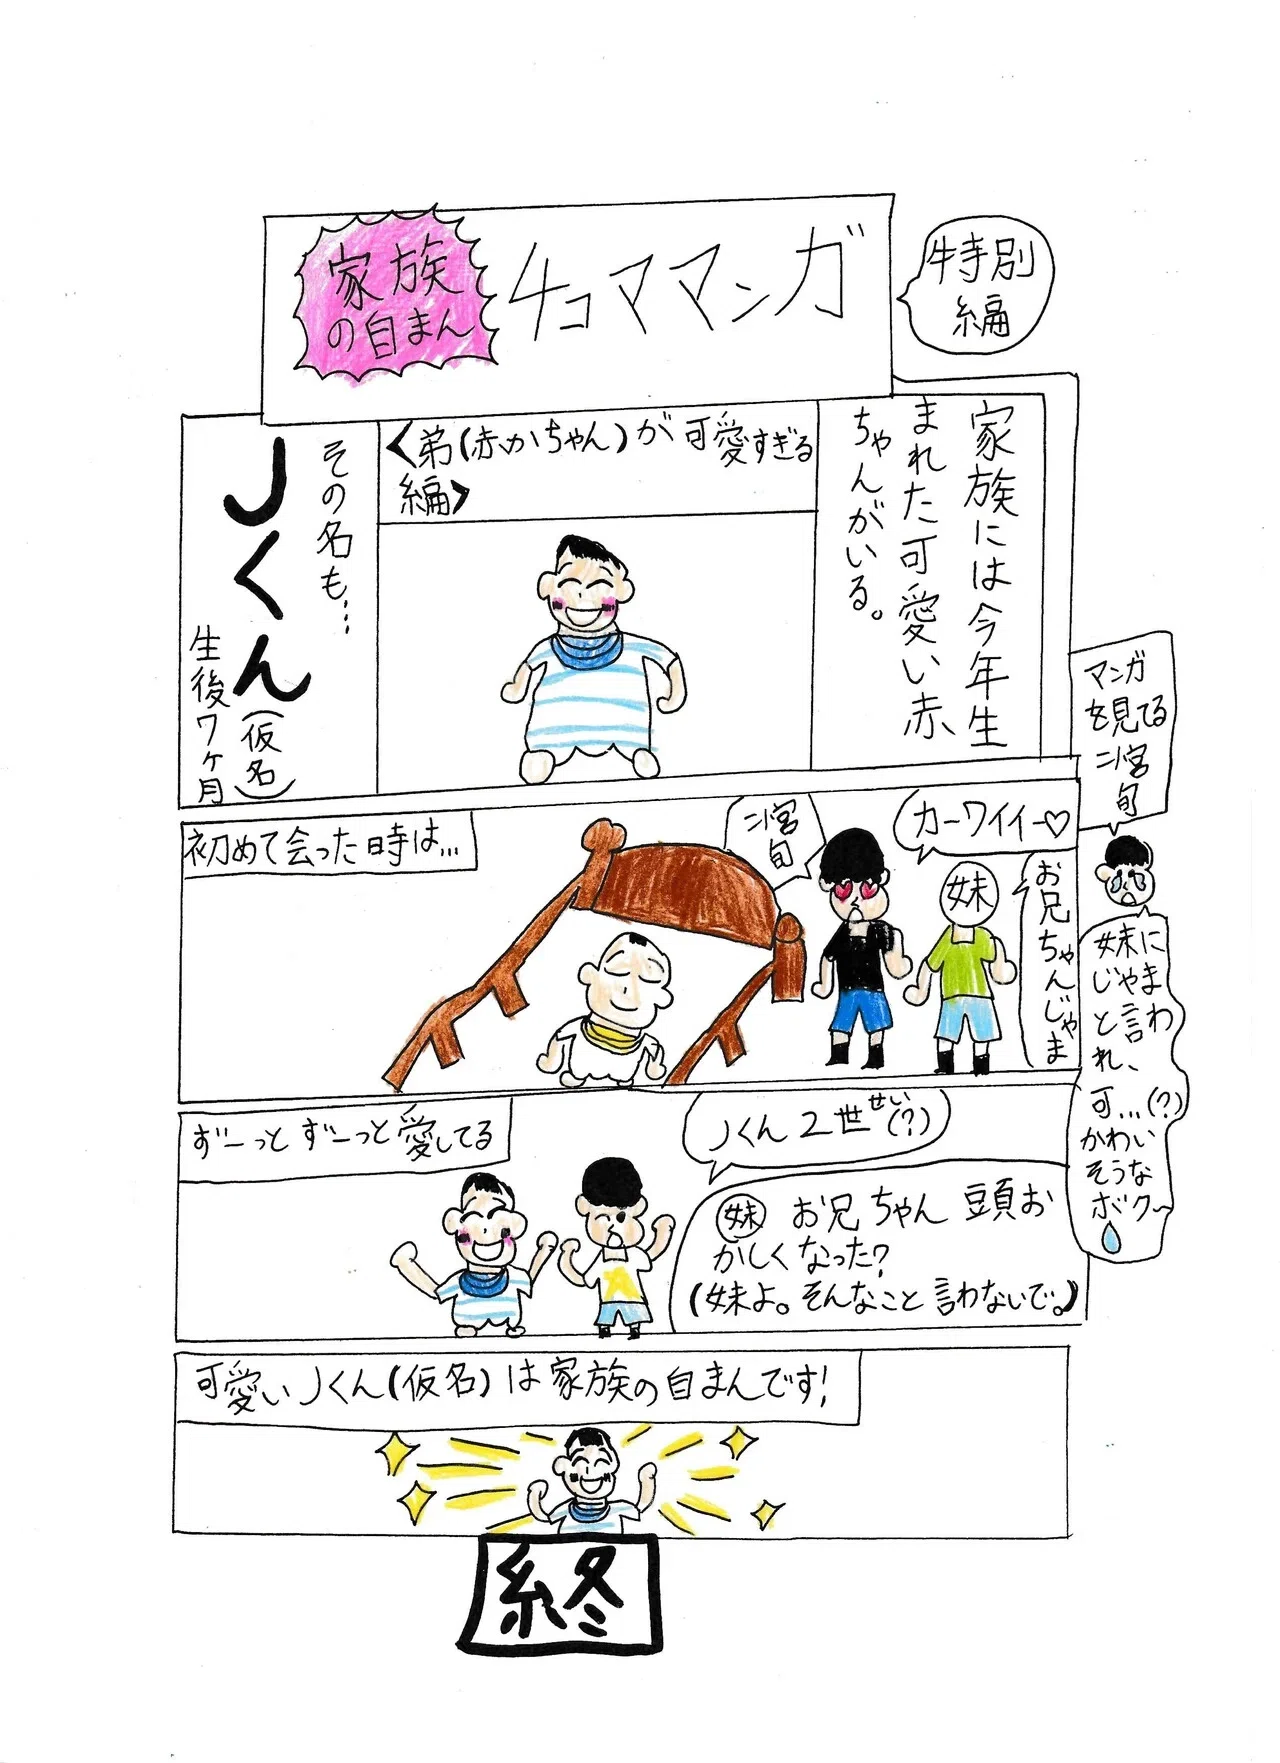 家族
の自まん
4コママンガ
特別
編
家族には今年生
まれた可愛い赤
ちゃんがいる。
<弟(赤かちゃん)が可愛すぎる
編>
その名も…
Jくん(仮名)
生後7ヶ月
マンガ
を見てる
二宮
旬
初めて会った時は…
二宮
旬
カーワイイー♡
妹
お兄ちゃんじゃま
妹に
じゃま
と言わ
れ、
可…(?)
かわい
そうな
ボク〜
ずーっとずーっと愛してる
Jくん2世(?)
せい
妹 お兄ちゃん頭お
かしくなった?
(妹よ。そんなこと言わないで。)
可愛いJくん(仮名)は家族の自まんです!
終